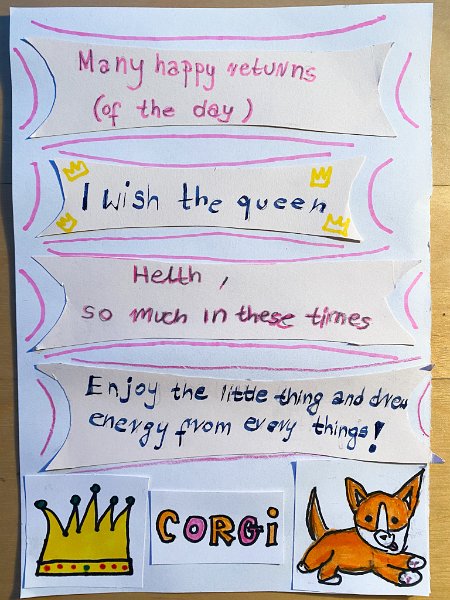 Many happy retunns
(of the day)
I wish the queen
Helth,
so much in these times
Enjoy the little thing and drew
energy from every things!
CORGi